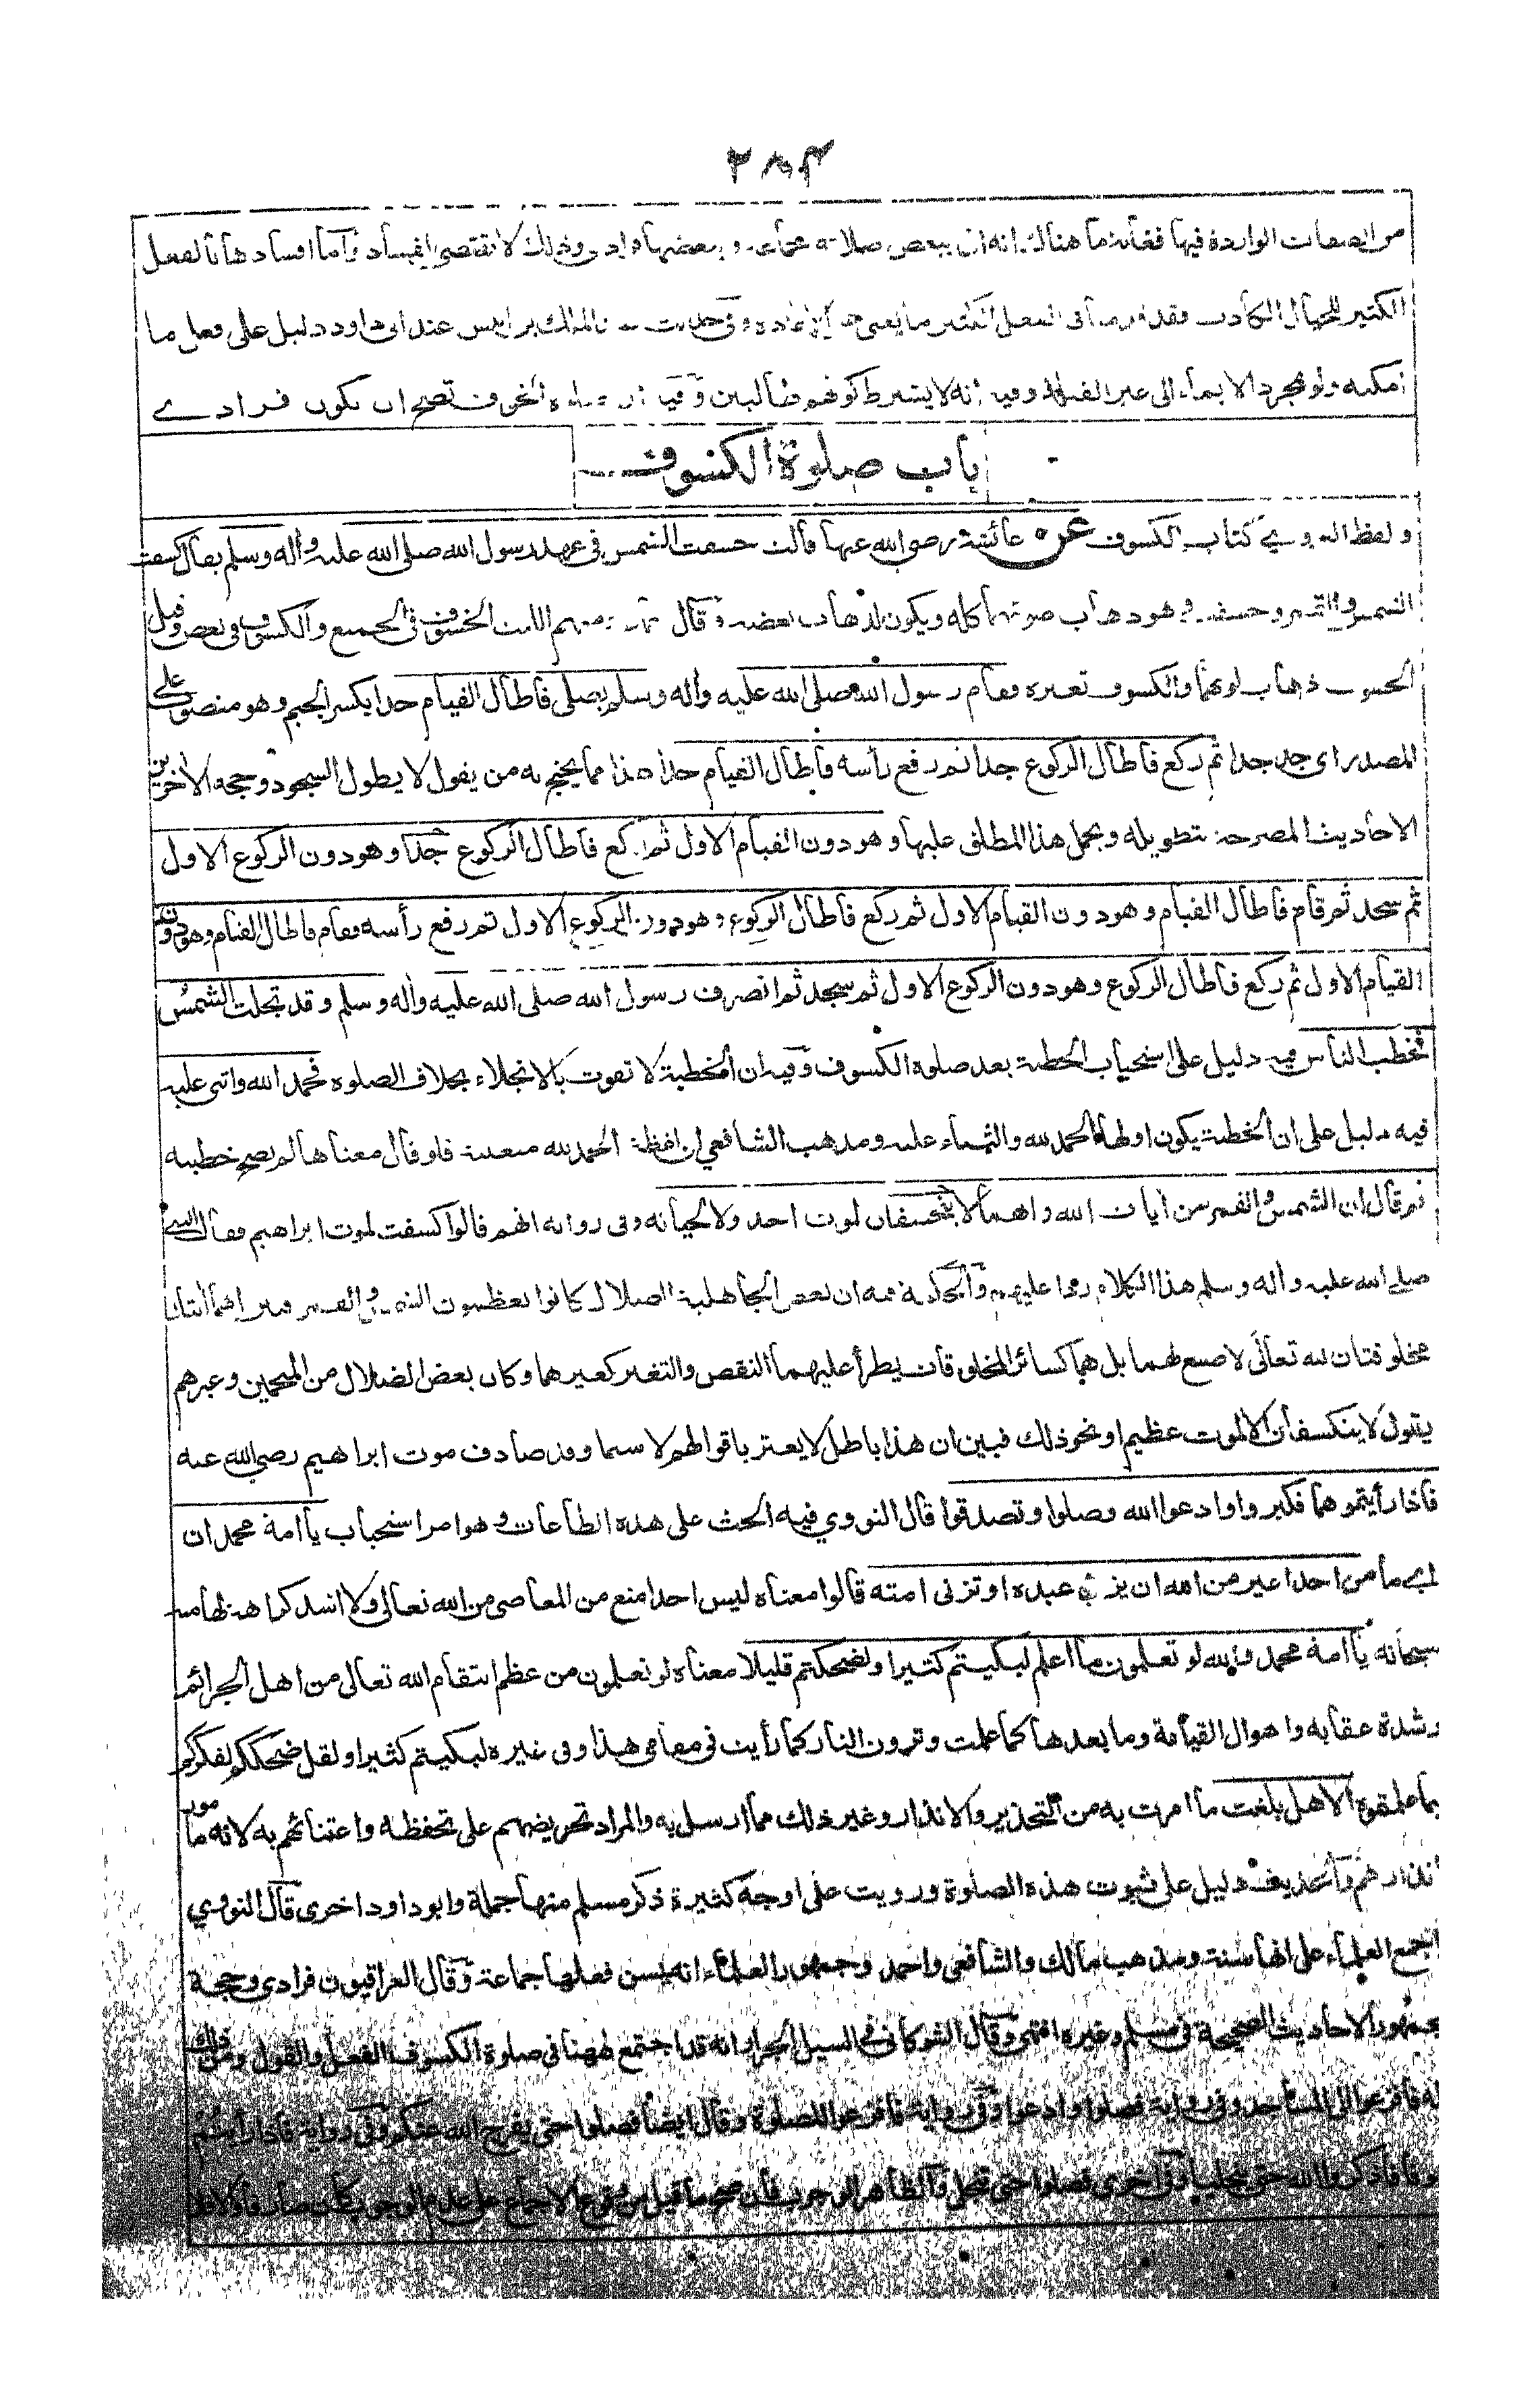 ٢٨٣
من الصفات الواردة فيها فغاية ما هناك انه اتى ببعض صلاته جماعة وبعضها فرادى وذلك لا يقتضي الفساد وأما افسادها بالفعل
الكثير للخيال الكاذب فقد من الفعل الكثير وفي حديث عبد الله بن انيس عند ابى داود دليل على فعل ما
امكنه ولو بمجرد الايماء الى غير القبلة وفيه انه لا يشترط كونهم طالبين وفيه ان صلوة الخوف تصح ان تكون فرادے
باب صلوة الكسوف
ولفظ النووي كتاب الكسوف عن عائشة رضي الله عنها قالت خسفت الشمس في عهد رسول الله صلى الله عليه وأله وسلم يقال كسفت
الشمس والقمر وخسف وهو ذهاب ضوئهما كله ويكون لذهاب بعضه وقال منهم الليث الخسوف في الجميع والكسوف في بعض وقيل
الخسوف ذهاب لونهما والكسوف تغيره فقام رسول الله صلى الله عليه وأله وسلم يصلي فأطال القيام جدا بكسر الجيم وهو منصوب على
المصدر اى جد جدا ثم ركع فأطال الركوع جدا ثم رفع رأسه فأطال القيام جدا هذا مما يحتج به من يقول لا يطول السجود وحجة الأخرين
الأحاديث المصرحة بتطويله ويحمل هذا المطلق عليها وهو دون القيام الأول ثم ركع فأطال الركوع جدا وهو دون الركوع الاول
ثم سجد ثم قام فأطال القيام وهو دون القيام الاول ثم ركع فأطال الركوع وهو دون الركوع الاول ثم رفع رأسه فقام فاطال القيام وهو دون
القيام الأول ثم ركع فأطال الركوع وهو دون الركوع الأول ثم سجد ثم انصرف رسول الله صلى الله عليه وأله وسلم وقد تجلت الشمس
فخطب الناس فيه دليل على استحباب الخطبة بعد صلوة الكسوف وفيه ان الخطبة لا تفوت بالانجلاء بخلاف الصلوة فحمد الله واثنى عليه
فيه دليل على ان الخطبة يكون اولها الحمد لله والثناء عليه ومذهب الشافعي ان لفظة الحمد لله متعينة فلو قال معناها لم تصح خطبته
ثم قال ان الشمس والقمر من أيات الله وانهما لا ينخسفان لموت احد ولا لحياته وفي رواية انهم قالوا كسفت لموت ابراهيم فقال النبي
صلى الله عليه وأله وسلم هذا الكلام ردا عليهم والحكمة فيه ان بعض الجاهلية الضلال كانوا يعظمون الشمس والقمر فبين انهما أيتان
مخلوقتان لله تعالى لا صنع لهما بل هما كسائر المخلوقات يطرأ عليهما النقص والتغير كغيرهما وكان بعض الضلال من المنجمين وغيرهم
يقول لا ينكسفان الا لموت عظيم او نحو ذلك فبين ان هذا باطل لا يغتر باقوالهم لا سيما وقد صادف موت ابراهيم رضي الله عنه
فأذا رأيتموهما فكبروا وادعوا الله وصلوا وتصدقوا قال النووي فيه الحث على هذه الطاعات وهو امر استحباب يا أمة محمد ان
ما من احد اغير من الله ان يزني عبده او تزني امته قالوا معناه ليس احد امنع من المعاصى من الله تعالى ولا اشد كراهة لها منه
سبحانه يا أمة محمد والله لو تعلمون ما اعلم لبكيتم كثيرا ولضحكتم قليلا معناه لو تعلمون من عظم انتقام الله تعالى من اهل الجرائم
وشدة عقابه واهوال القيامة وما بعدها كما علمت وترون النار كما رأيت في مقامي هذا وفي غيره لبكيتم كثيرا ولقل ضحككم لفكركم
بما علمتموه ألا هل بلغت ما امرت به من التحذير والانذار وغير ذلك مما ارسل به والمراد تحريضهم على تحفظه واعتنائهم به لانه مأمور
بأنذارهم والحديث دليل على ثبوت هذه الصلوة ورويت على اوجه كثيرة ذكر مسلم منها جملة وابو داود اخرى قال النووي
اجمع العلماء على انها سنة ومذهب مالك والشافعي واحمد وجمهور العلماء انه يسن فعلها جماعة وقال العراقيون فرادى وحجة
الجمهور الاحاديث الصحيحة في مسلم وغيره انتهى وقال الشوكاني في السيل الجرار انه قد اجتمع ههنا في صلوة الكسوف الفعل والقول ومن ذلك
قوله فأفزعوا الى المساجد وفي رواية فصلوا وادعوا وفي رواية فافزعوا للصلوة وقال ايضا فصلوا حتى يفرج الله عنكم وفي رواية فأذا رأيتم
فاذكروا الله حتى ينجليا وفي اخرى فصلوا حتى تنجلي والظاهر الوجوب فان صح ما قيل من وقوع الاجماع على عدم الوجوب كان صارفا والا فلا